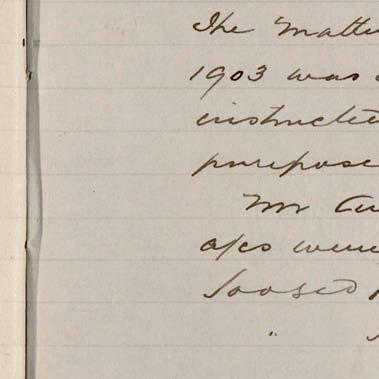 The Matte
1903 was
instructe
purpose
Mr
a/cs were
"